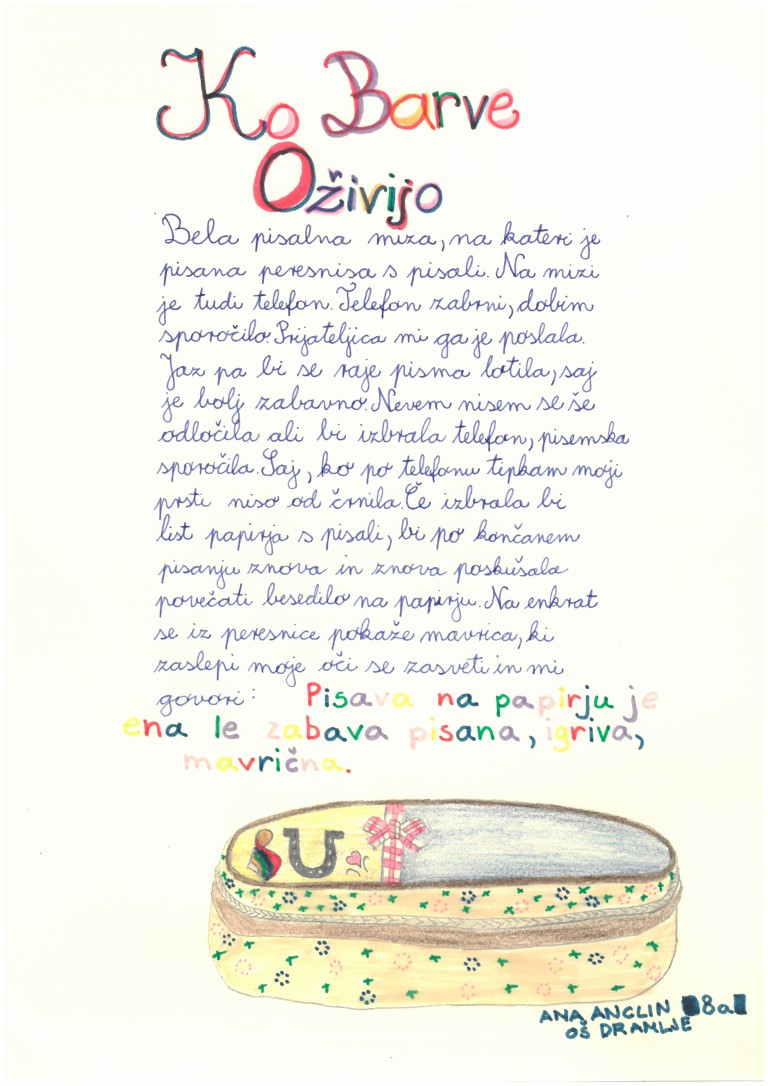 Ko Barve
Oživijo
Bela pisalna miza, na kateri je
pisana peresnisa s pisali. Na mizi
je tudi telefon. Telefon zabrni, dobim
sporočilo. Prijateljica mi ga je poslala.
Jaz pa bi se raje pisma lotila, saj
je bolj zabavno. Nevem nisem se še
odločila ali bi izbrala telefon, pisemska
sporočila. Saj, ko po telefonu tipkam moji
prsti niso od črnila. Če izbrala bi
list papirja s pisali, bi po končanem
pisanju znova in znova poskušala
povečati besedilo na papirju. Na enkrat
se iz peresnice pokaže mavrica, ki
zaslepi moje oči se zasveti in mi
govori: Pisava na papirju je
ena le zabava pisana, igriva,
mavrična.
ANA ANCLIN 8a
OŠ DRAMLJE